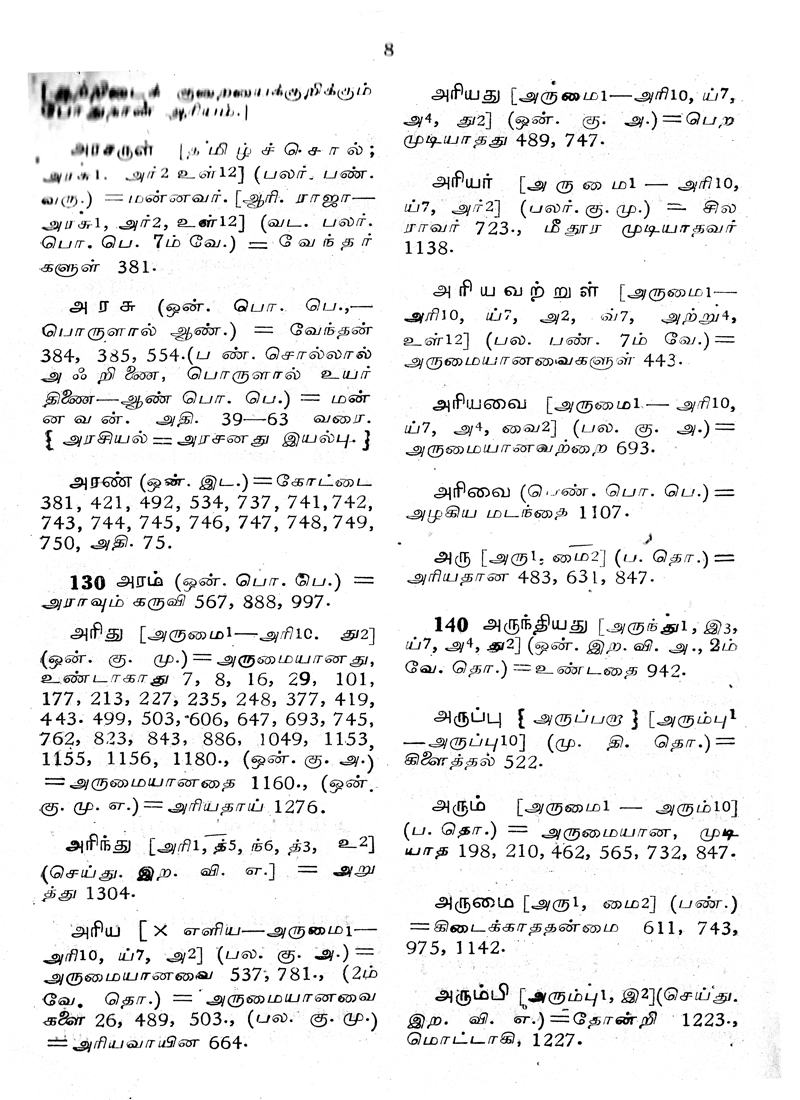 8
அரசருள் [தமிழ்ச்சொல்;
அரசு1, அர்2 உள்12] (பலர். பண்.
வரு.) =மன்னவர். [ஆரி. ராஜா—
அரசு1, அர்2, உள்12] (வட. பலர்.
பொ. பெ. 7ம் வே.) = வேந்தர்
களுள் 381.
அரசு (ஒன். பொ. பெ.,—
பொருளால் ஆண்.) = வேந்தன்
384, 385, 554.(பண். சொல்லால்
அஃறிணை, பொருளால் உயர்
திணை—ஆண் பொ. பெ.) = மன்
னவன். அதி. 39—63 வரை.
{ அரசியல் = அரசனது இயல்பு. }
அரண் (ஒன். இட.)=கோட்டை
381, 421, 492, 534, 737, 741, 742,
743, 744, 745, 746, 747, 748, 749,
750, அதி. 75.
130 அரம் (ஒன். பொ. பே.) =
அராவும் கருவி 567, 888, 997.
அரிது [அருமை1—அரி10. து2]
(ஒன். கு. மு.)=அருமையானது,
உண்டாகாது 7, 8, 16, 29, 101,
177, 213, 227, 235, 248, 377, 419,
443. 499, 503, 606, 647, 693, 745,
762, 823, 843, 886, 1049, 1153,
1155, 1156, 1180., (ஒன். கு. அ.)
=அருமையானதை 1160., (ஒன்.
கு. மு. எ.)=அரியதாய் 1276.
அரிந்து [அரி1, த்5, ந்6, த்3, உ2]
(செய்து. இற. வி. எ.] = அறு
த்து 1304.
அரிய [× எளிய—அருமை1—
அரி10, ய்7, அ2] (பல. கு. அ.)=
அருமையானவை 537, 781., (2ம்
வே. தொ.) = அருமையானவை
களை 26, 489, 503., (பல. கு. மு.)
=அரியவாயின 664.
அரியது [அருமை1—அரி10, ய்7,
அ4, து2] (ஒன். கு. அ.)=பெற
முடியாதது 489, 747.
அரியர் [அருமை1 — அரி10,
ய்7, அர்2] (பலர். கு. மு.) = சில
ராவர் 723., மீதூர முடியாதவர்
1138.
அரியவற்றுள் [அருமை1—
அரி10, ய்7, அ2, வ்7, அற்று4,
உள்12] (பல. பண். 7ம் வே.)=
அருமையானவைகளுள் 443.
அரியவை [அருமை1— அரி10,
ய்7, அ4, வை2] (பல. கு. அ.)=
அருமையானவற்றை 693.
அரிவை (பெண். பொ. பெ.)=
அழகிய மடந்தை 1107.
அரு [அரு1, மை2] (ப. தொ.)=
அரியதான 483, 631, 847.
140 அருந்தியது [அருந்து1, இ3,
ய்7, அ4, து2] (ஒன். இற. வி. அ., 2ம்
வே. தொ.)=உண்டதை 942.
அருப்பு { அருப்பறா } [அரும்பு1
—அருப்பு10] (மு. தி. தொ.)=
கிளைத்தல் 522.
அரும் [அருமை1 — அரும்10]
(ப. தொ.) = அருமையான, முடி
யாத 198, 210, 462, 565, 732, 847.
அருமை [அரு1, மை2] (பண்.)
=கிடைக்காததன்மை 611, 743,
975, 1142.
அரும்பி [அரும்பு1, இ2](செய்து.
இற. வி. எ.)=தோன்றி 1223.,
மொட்டாகி, 1227.